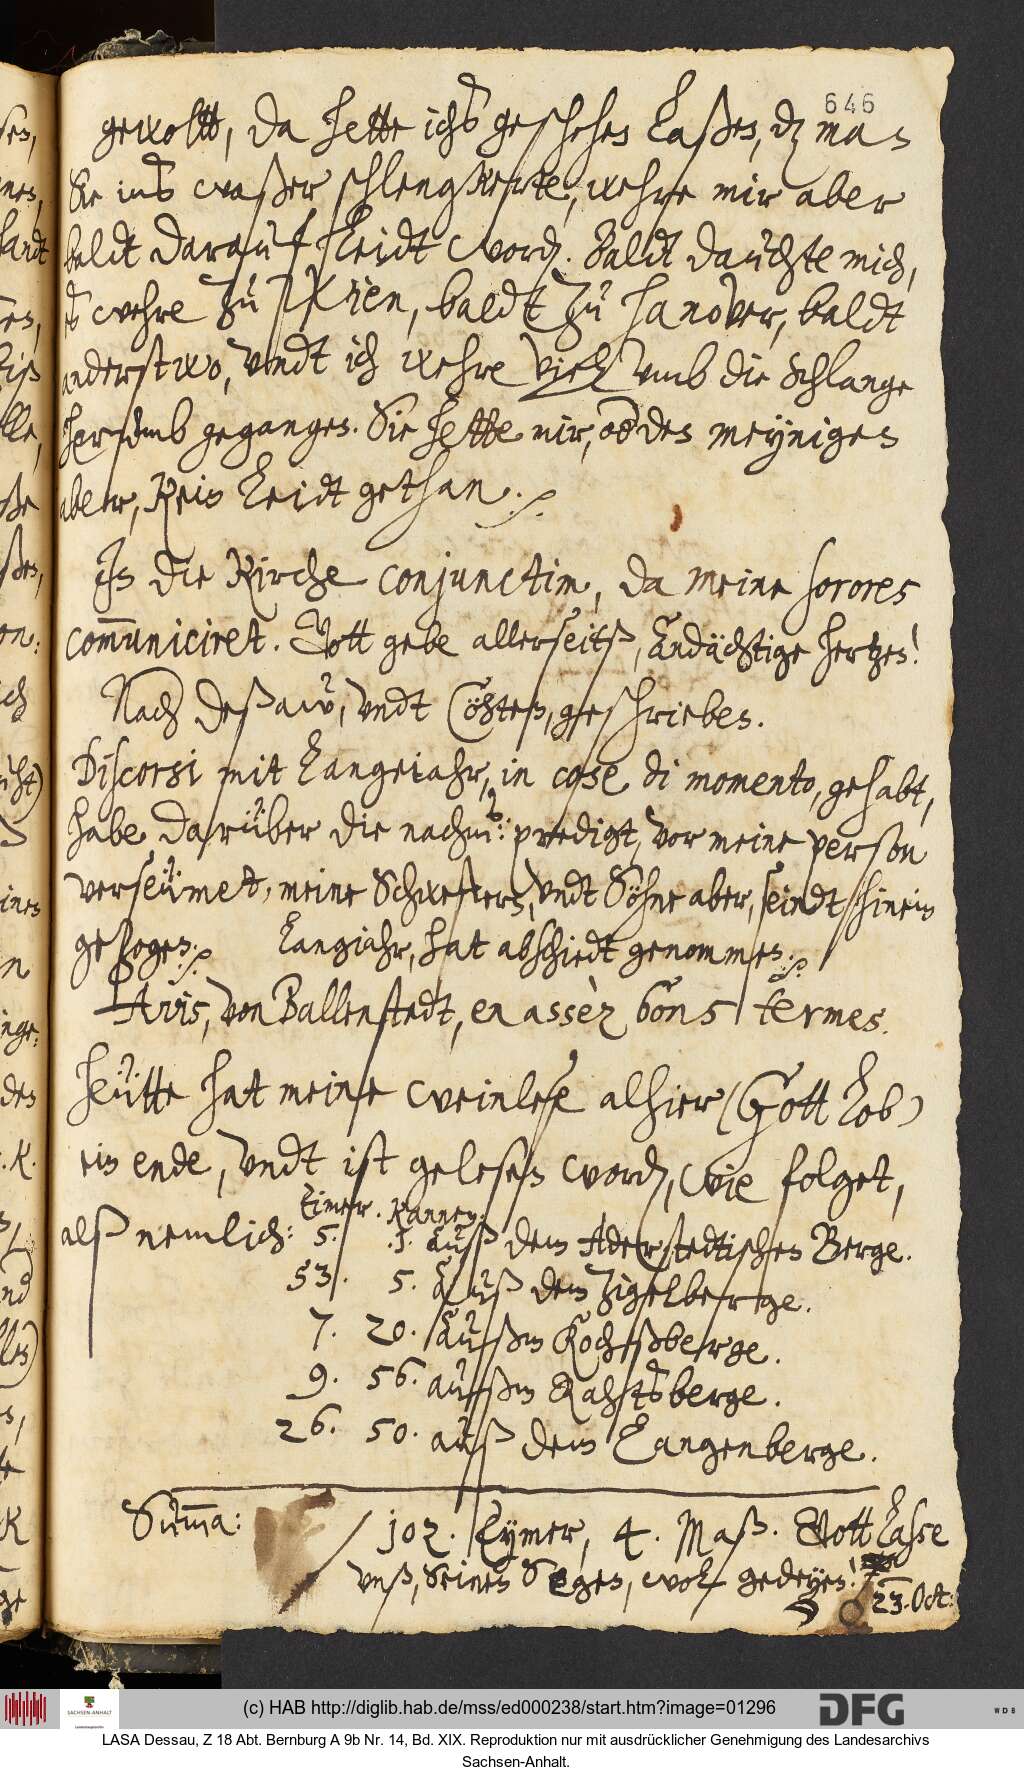 646
gewollt, da hette ichs geschehen laßen, dz man
Sie ins waßer schlengkerte, wehre mir aber
baldt darauf leidt word. Baldt dauchte mich,
es wehre zu Wien, baldt zu Hanover, baldt
anderstwo, undt ich wehre viel umb die Schlange
herumb gegangen. Sie hette mir, od den meynigen
aber, kein leidt gethan.
In die kirche conjunctim, da meine sorores
com̅uniciret. Gott gebe allerseitß, andächtige hertzen!
Nach Deßaw, undt Cöhten, geschrieben.
Discorsi mit Langeiahr, in cose di momento, gehabt,
habe darüber die nachm: predigt, vor meine person
verseümet, meine Schwestern, undt Söhne aber, seindt hinein
gezogen. Langiahr, hat abschiedt genommen.
Avis, von Ballenstedt, en assèz bons termes.
Heütte hat meine weinlese alhier (Gott lob)
ein ende, undt ist gelesen word, wie folget,
alß nemlich: Eimer. Kannen.
5. 1. Auß dem Aderstedtischen Berge.
53. 5. Auß dem Zigelberge.
7. 20. Außm Kochßberge.
9. 56. außm Rahtsberge.
26. 50. auß dem Langenberge.
Sum̅a: / 102. Eymer, 4. Maß. Gott laße
unß, Seinen Segen, wol gedeyen!
23. Oct:
(c) HAB http://diglib.hab.de/mss/ed000238/start.htm?image=01296
SACHSEN-ANHALT
DFG
LASA Dessau, Z 18 Abt. Bernburg A 9b Nr. 14, Bd. XIX. Reproduktion nur mit ausdrücklicher Genehmigung des Landesarchivs
Sachsen-Anhalt.